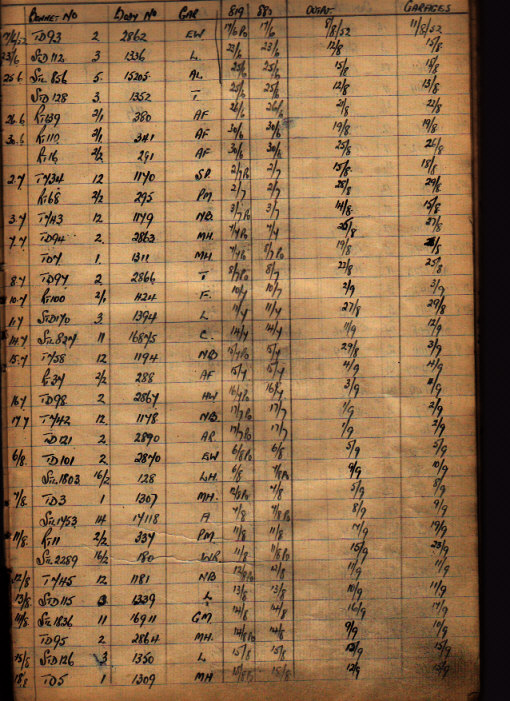 BONNET NO BODY NO GAR 819 883 OUTPUT GARAGES
17/6/52 TD93 2 2862 EW 17/6 Po 17/6 8/8/52 11/8/52
23/6 STD112 3 1336 L. 22/6 23/6 12/8 15/8
25.6 STL 856 5 15205 AL 25/6 25/6 15/8 18/8
STD128 3 1352 T 25/6 25/6 12/8 13/8
26.6 RT639 2/1 380 AF 26/6 26/6 22/8
30.6 RT1117 2/1 341 AF 30/6 30/6 19/8 19/8
RT16 2/2 291 AF 30/6 30/6 25/8 26/8
2.7 T434 12 1170 2/7 Po 2/7 15/8 18/8
RT68 2/2 295 P.M. 2/7 2/7 28/8 29/8
3.7 T443 12 1179 NB. 3/7 Po 3/7 14/8 15/8
7.7 TD94 2 2863 MH. 7/7 Po 7/7 27/8
TD7 1 1311 MH. 7/7 Po 19/8
8.7 TD97 2 2866 T 8/7 Po 8/7 22/8 25/8
10.7 RT100 2/1 424 F. 10/7 10/7 2/9 3/9
11.7 STD170 3 1394 L 11/7 11/7 27/8 29/8
14.7 STL 827 11 16875 C. 14/7 14/7 11/9 12/9
15.7 T458 12 1194 NB 15/7 Po 15/7 29/8 3/9
RT37 2/2 288 AF 15/7 15/7 4/9 4/9
16.7 TD98 2 2867 HW 16/7 Po 16/7 3/9 4/9
17.7 T442 12 1178 NB. 17/7 Po 17/7 1/9 2/9
TD121 2 2890 AR 17/7 Po 17/7 1/9 2/9
6/8. TD101 2 2870 EW 6/8 Po 6/8 5/9 5/9
STL 1803 16/2 128 LH. 6/8 7/8 Po 9/9 10/9
7/8 TD3 1 1307 MH. 7/8 5/9 8/9
STL 1453 14 17118 A 7/8 7/8 Po 8/9 9/9
11/8 RT11 2/2 337 PM. 11/8 11/8 17/9 19/9
STL 2289 16/2 180 WR 11/8 11/8 Po 15/9 23/9
12/8 T445 12 1181 NB 12/8 Po 12/8 11/9 11/9
13/8 STD115 3 1339 L 13/8 13/8 10/9 11/9
14/8 STL 1836 11 16911 GM 14/8 14/8 16/9 17/9
TD95 2 2864 MH. 14/8 Po 14/8 9/9 10/9
15/8 STD126 3 1350 L 15/8 15/8 13/9 15/9
18.8 TD5 1 1309 MH 15/8 12/9 15/9